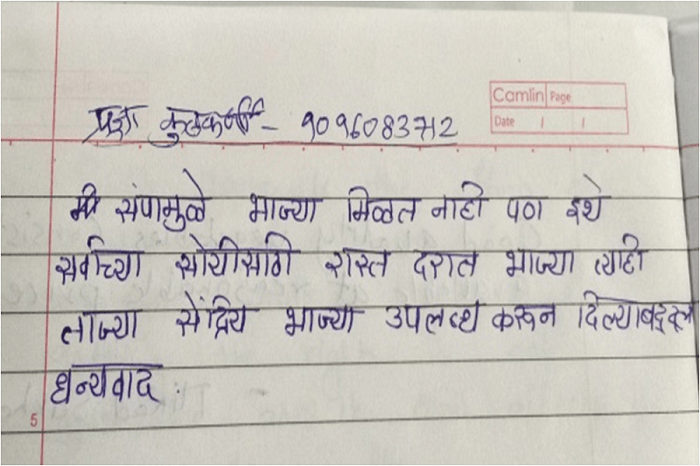 Camlin Page
Date / /
प्रज्ञा कुलकर्णी - 9096083712
संपामुळे भाज्या मिळत नाही पण इथे
सर्वांच्या सोयीसाठी रास्त दरात भाज्या त्याही
ताज्या सेंद्रिय भाज्या उपलब्ध करून दिल्याबद्दल
धन्यवाद.
5